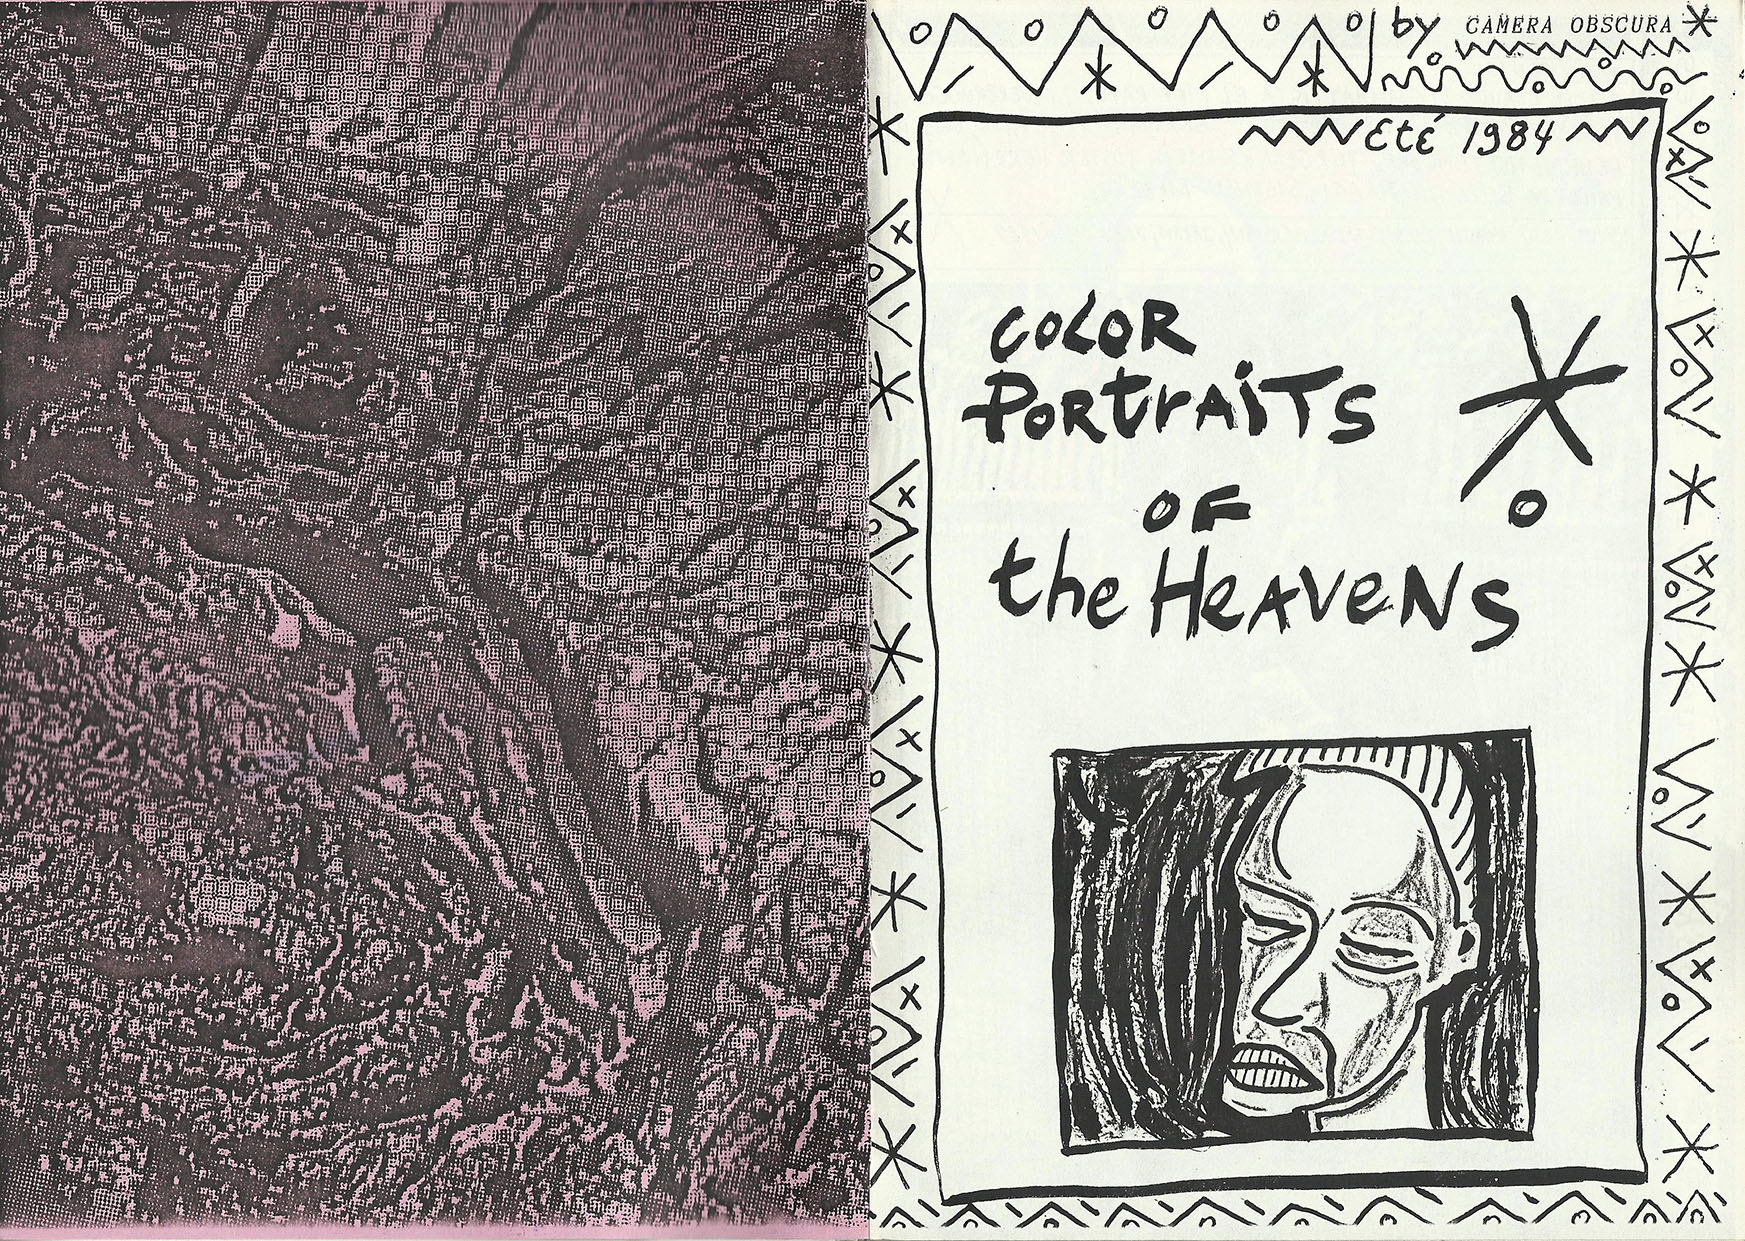 by CAMERA OBSCURA
Eté 1984
COLOR
PORTRAITS
OF
the HEAVENS